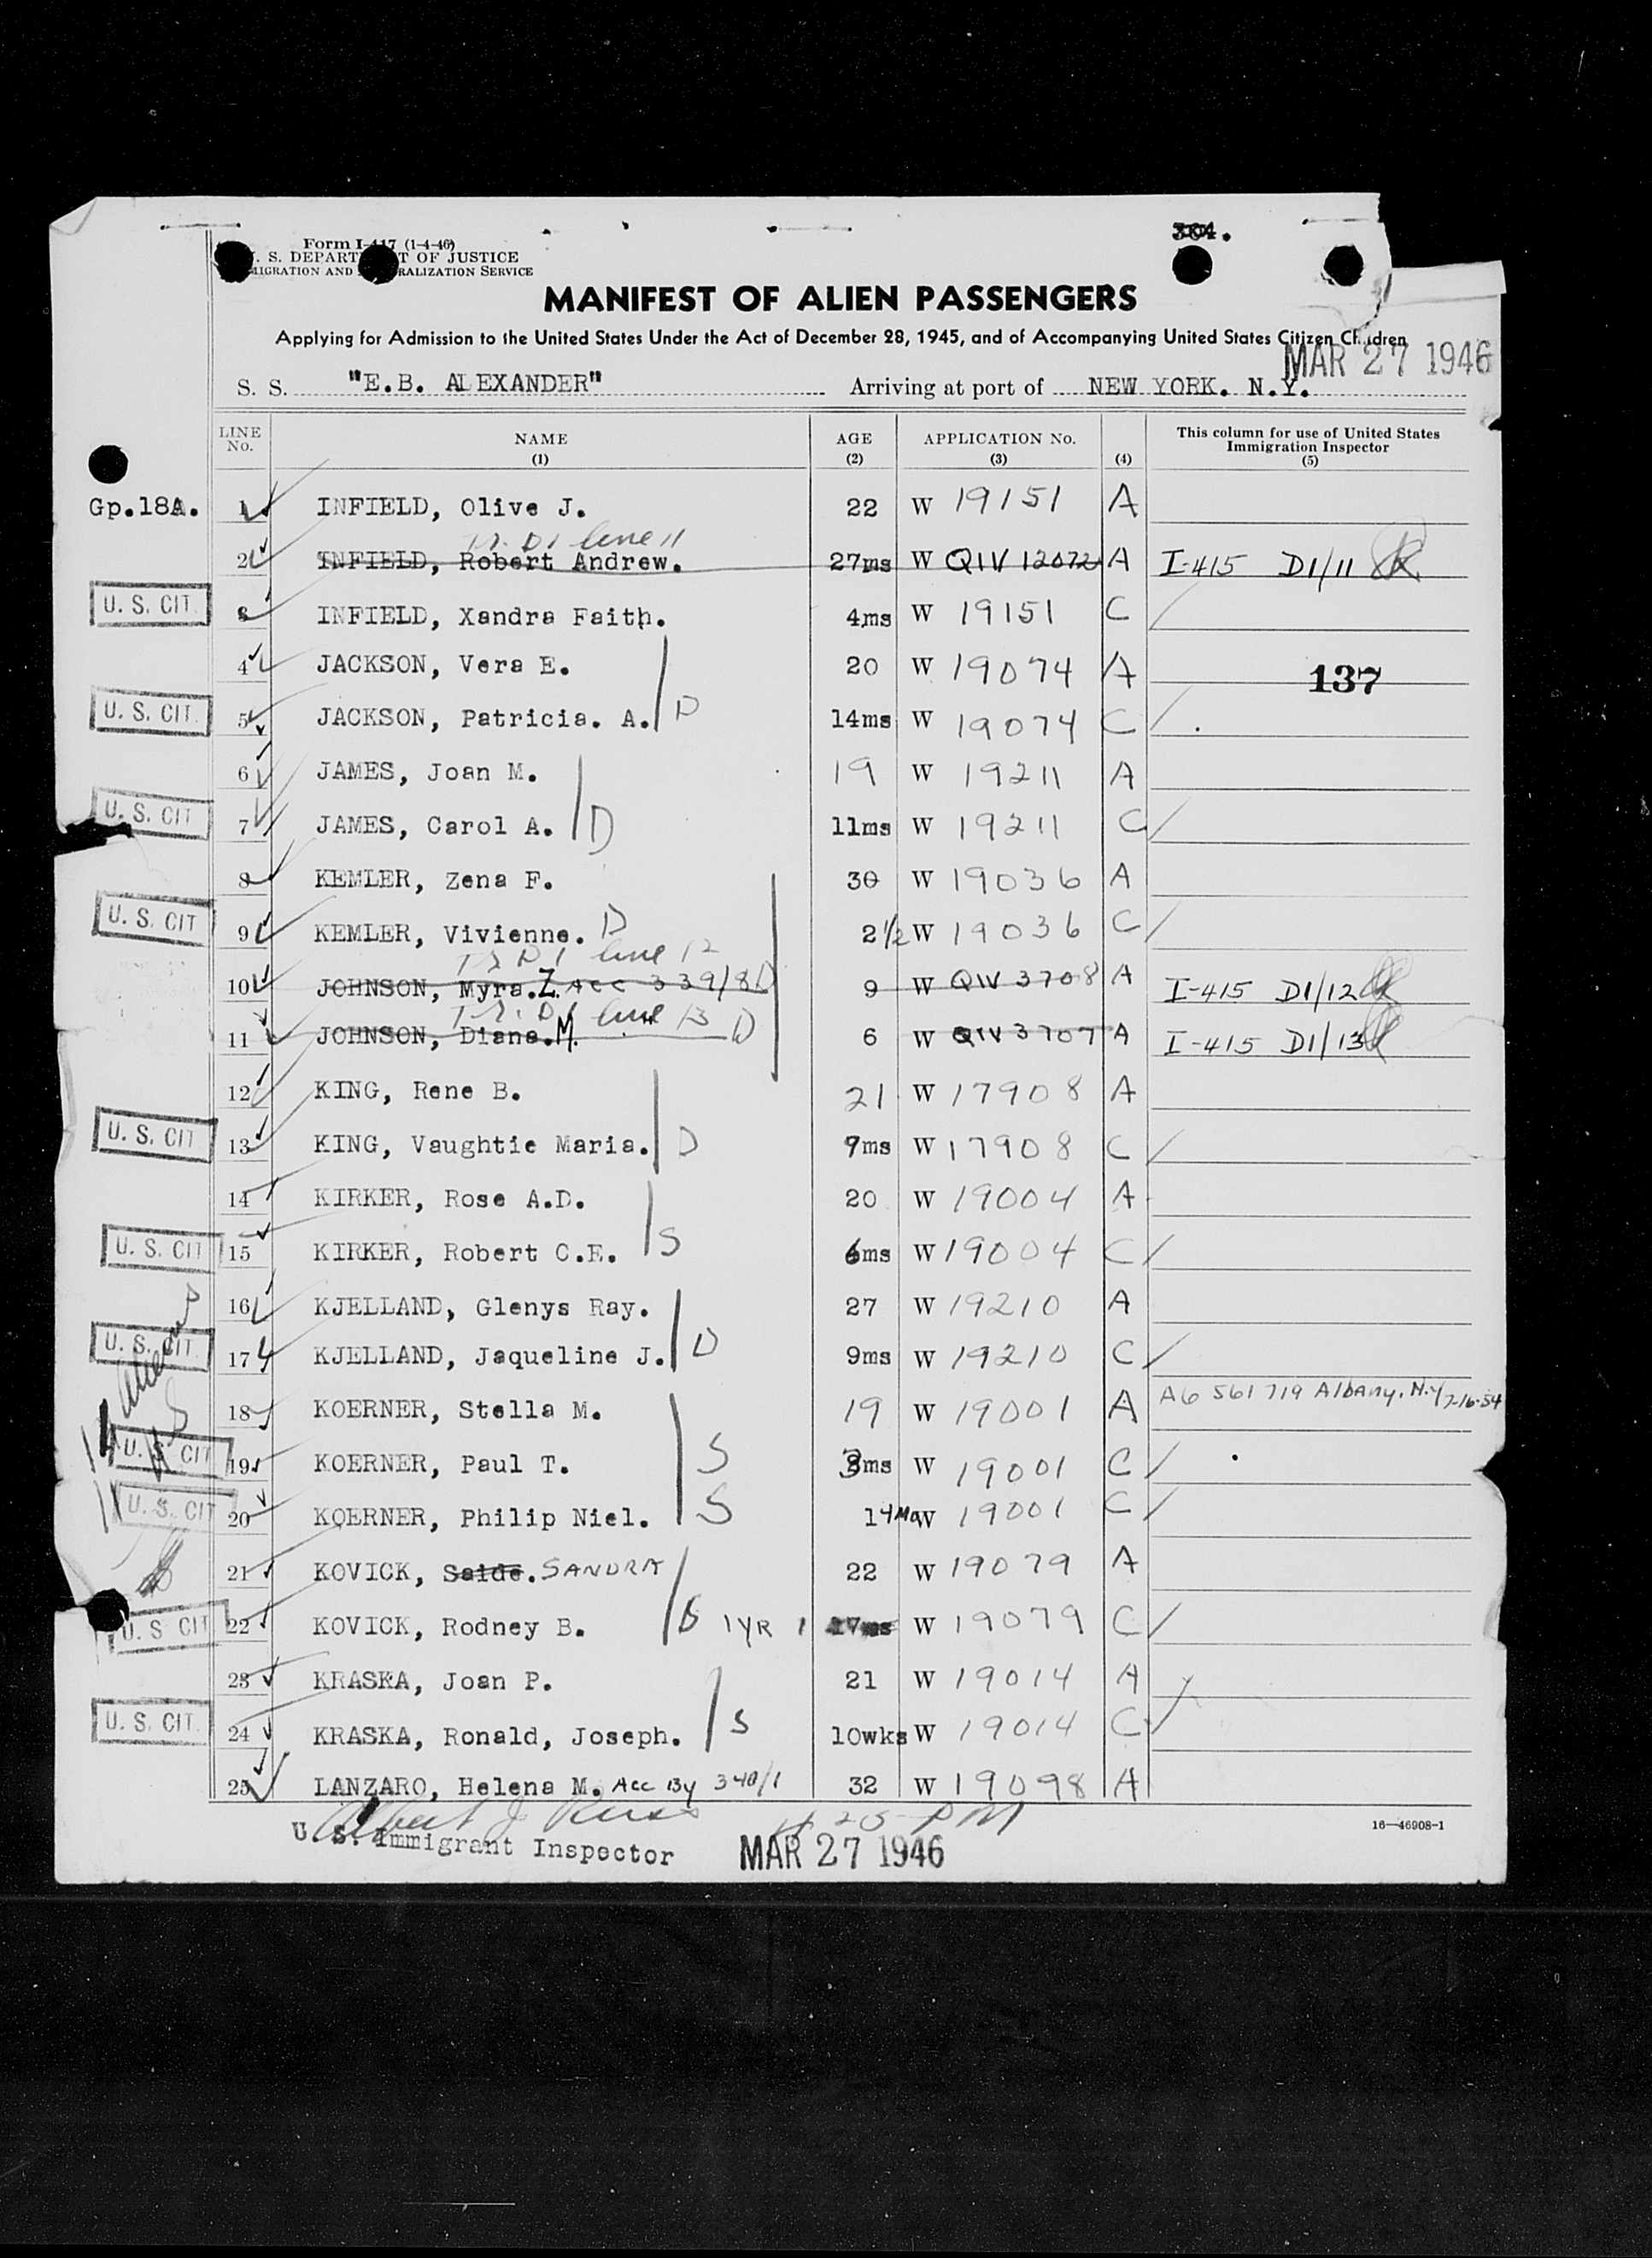 Form I-417 (1-4-46)
304.
U. S. DEPARTMENT OF JUSTICE
IMMIGRATION AND NATURALIZATION SERVICE
MANIFEST OF ALIEN PASSENGERS
Applying for Admission to the United States Under the Act of December 28, 1945, and of Accompanying United States Citizen Children
MAR 27 1946
S. S. "E.B. ALEXANDER" Arriving at port of NEW YORK. N.Y.
LINE No. NAME (1) AGE (2) APPLICATION No. (3) (4) This column for use of United States Immigration Inspector (5)
Gp.18A. 1 INFIELD, Olive J. 22 W 19151 A
Tr. D1 line 11
2 INFIELD, Robert Andrew. 27ms W QIV 12072 A I-415 D1/11
U. S. CIT. 3 INFIELD, Xandra Faith. 4ms W 19151 C
4 JACKSON, Vera E. 20 W 19074 A 137
U. S. CIT. 5 JACKSON, Patricia. A. D 14ms W 19074 C
6 JAMES, Joan M. 19 W 19211 A
U. S. CIT 7 JAMES, Carol A. D 11ms W 19211 C
8 KEMLER, Zena F. 30 W 19036 A
U. S. CIT 9 KEMLER, Vivienne. D 2½ W 19036 C
Tr D1 line 12
10 JOHNSON, Myra. Z. Acc 339/8 D 9 W QIV 3708 A I-415 D1/12
Tr. D1 line 13
11 JOHNSON, Diana. M. D 6 W QIV 3707 A I-415 D1/13
12 KING, Rene B. 21 W 17908 A
U. S. CIT 13 KING, Vaughtie Maria. D 9ms W 17908 C
14 KIRKER, Rose A.D. 20 W 19004 A
U. S. CIT 15 KIRKER, Robert C.E. S 6ms W 19004 C
16 KJELLAND, Glenys Ray. 27 W 19210 A
U. S. CIT. 17 KJELLAND, Jaqueline J. D 9ms W 19210 C
18 KOERNER, Stella M. 19 W 19001 A A6 561 719 Albany, N.Y 7-16-54
U. S. CIT 19 KOERNER, Paul T. S 3ms W 19001 C
U. S. CIT 20 KOERNER, Philip Niel. S 14Mo W 19001 C
21 KOVICK, Saide. SANDRA 22 W 19079 A
U. S CIT 22 KOVICK, Rodney B. S 1 YR 17ms W 19079 C
23 KRASKA, Joan P. 21 W 19014 A
U. S. CIT. 24 KRASKA, Ronald, Joseph. S 10wks W 19014 C
25 LANZARO, Helena M. Acc By 340/1 32 W 19098 A
16—46908-1
U. S. Immigrant Inspector MAR 27 1946